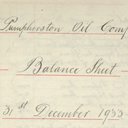 Pumpherston Oil Comp
Balance Sheet
31st December 1933